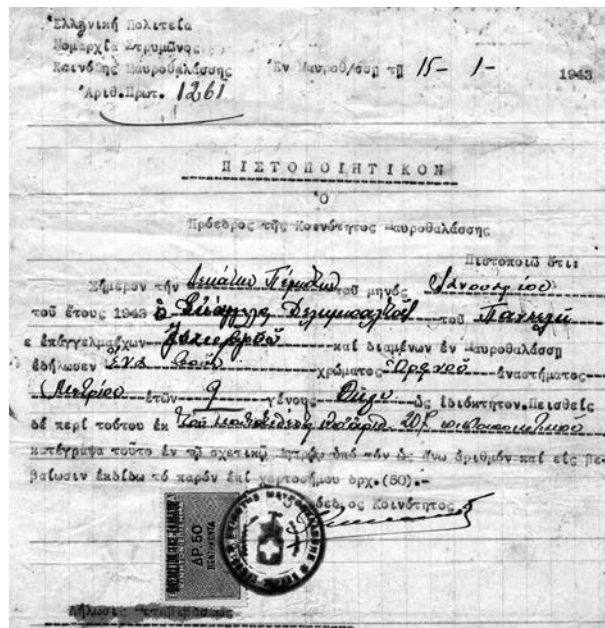 Ἑλληνική Πολιτεία
Νομαρχία Στρυμῶνος
Κοινότης Μαυροθαλάσσης Ἐν Μαυροθ/σσῃ τῇ 15- 1- 1943
Ἀριθ.Πρωτ. 1261
ΠΙΣΤΟΠΟΙΗΤΙΚΟΝ
Ὁ
Πρόεδρος τῆς Κοινότητος Μαυροθαλάσσης
Πιστοποιῶ ὅτι:
Σήμερον τήν Δεκάτην Πέμπτην τοῦ μηνός Ἰανουαρίου
τοῦ ἔτους 1943 ὁ τοῦ Παντελῆ
ἐπάγγελμαχων καί διαμένων ἐν Μαυροθαλάσσῃ
ἐδήλωσεν Ἕνα χρώματος ἀναστήματος
Μετρίου ἐτῶν 9 γένους Θήλυ ὡς ἰδιόκτητον.Πεισθείς
δέ περί τούτου ἐκ τοῦ
κατέγραψα τοῦτο ἐν τῷ σχετικῷ Μητρώῳ ὑπό τόν ὡς ἄνω ἀριθμόν καί εἰς βε-
βαίωσιν ἐκδίδω τό παρόν ἐπί χαρτοσήμου δρχ.(50).-
Πρόεδρος Κοινότητος
ΔΡ.50
ΠΕΝΗΝΤΑ
Δήλωσις